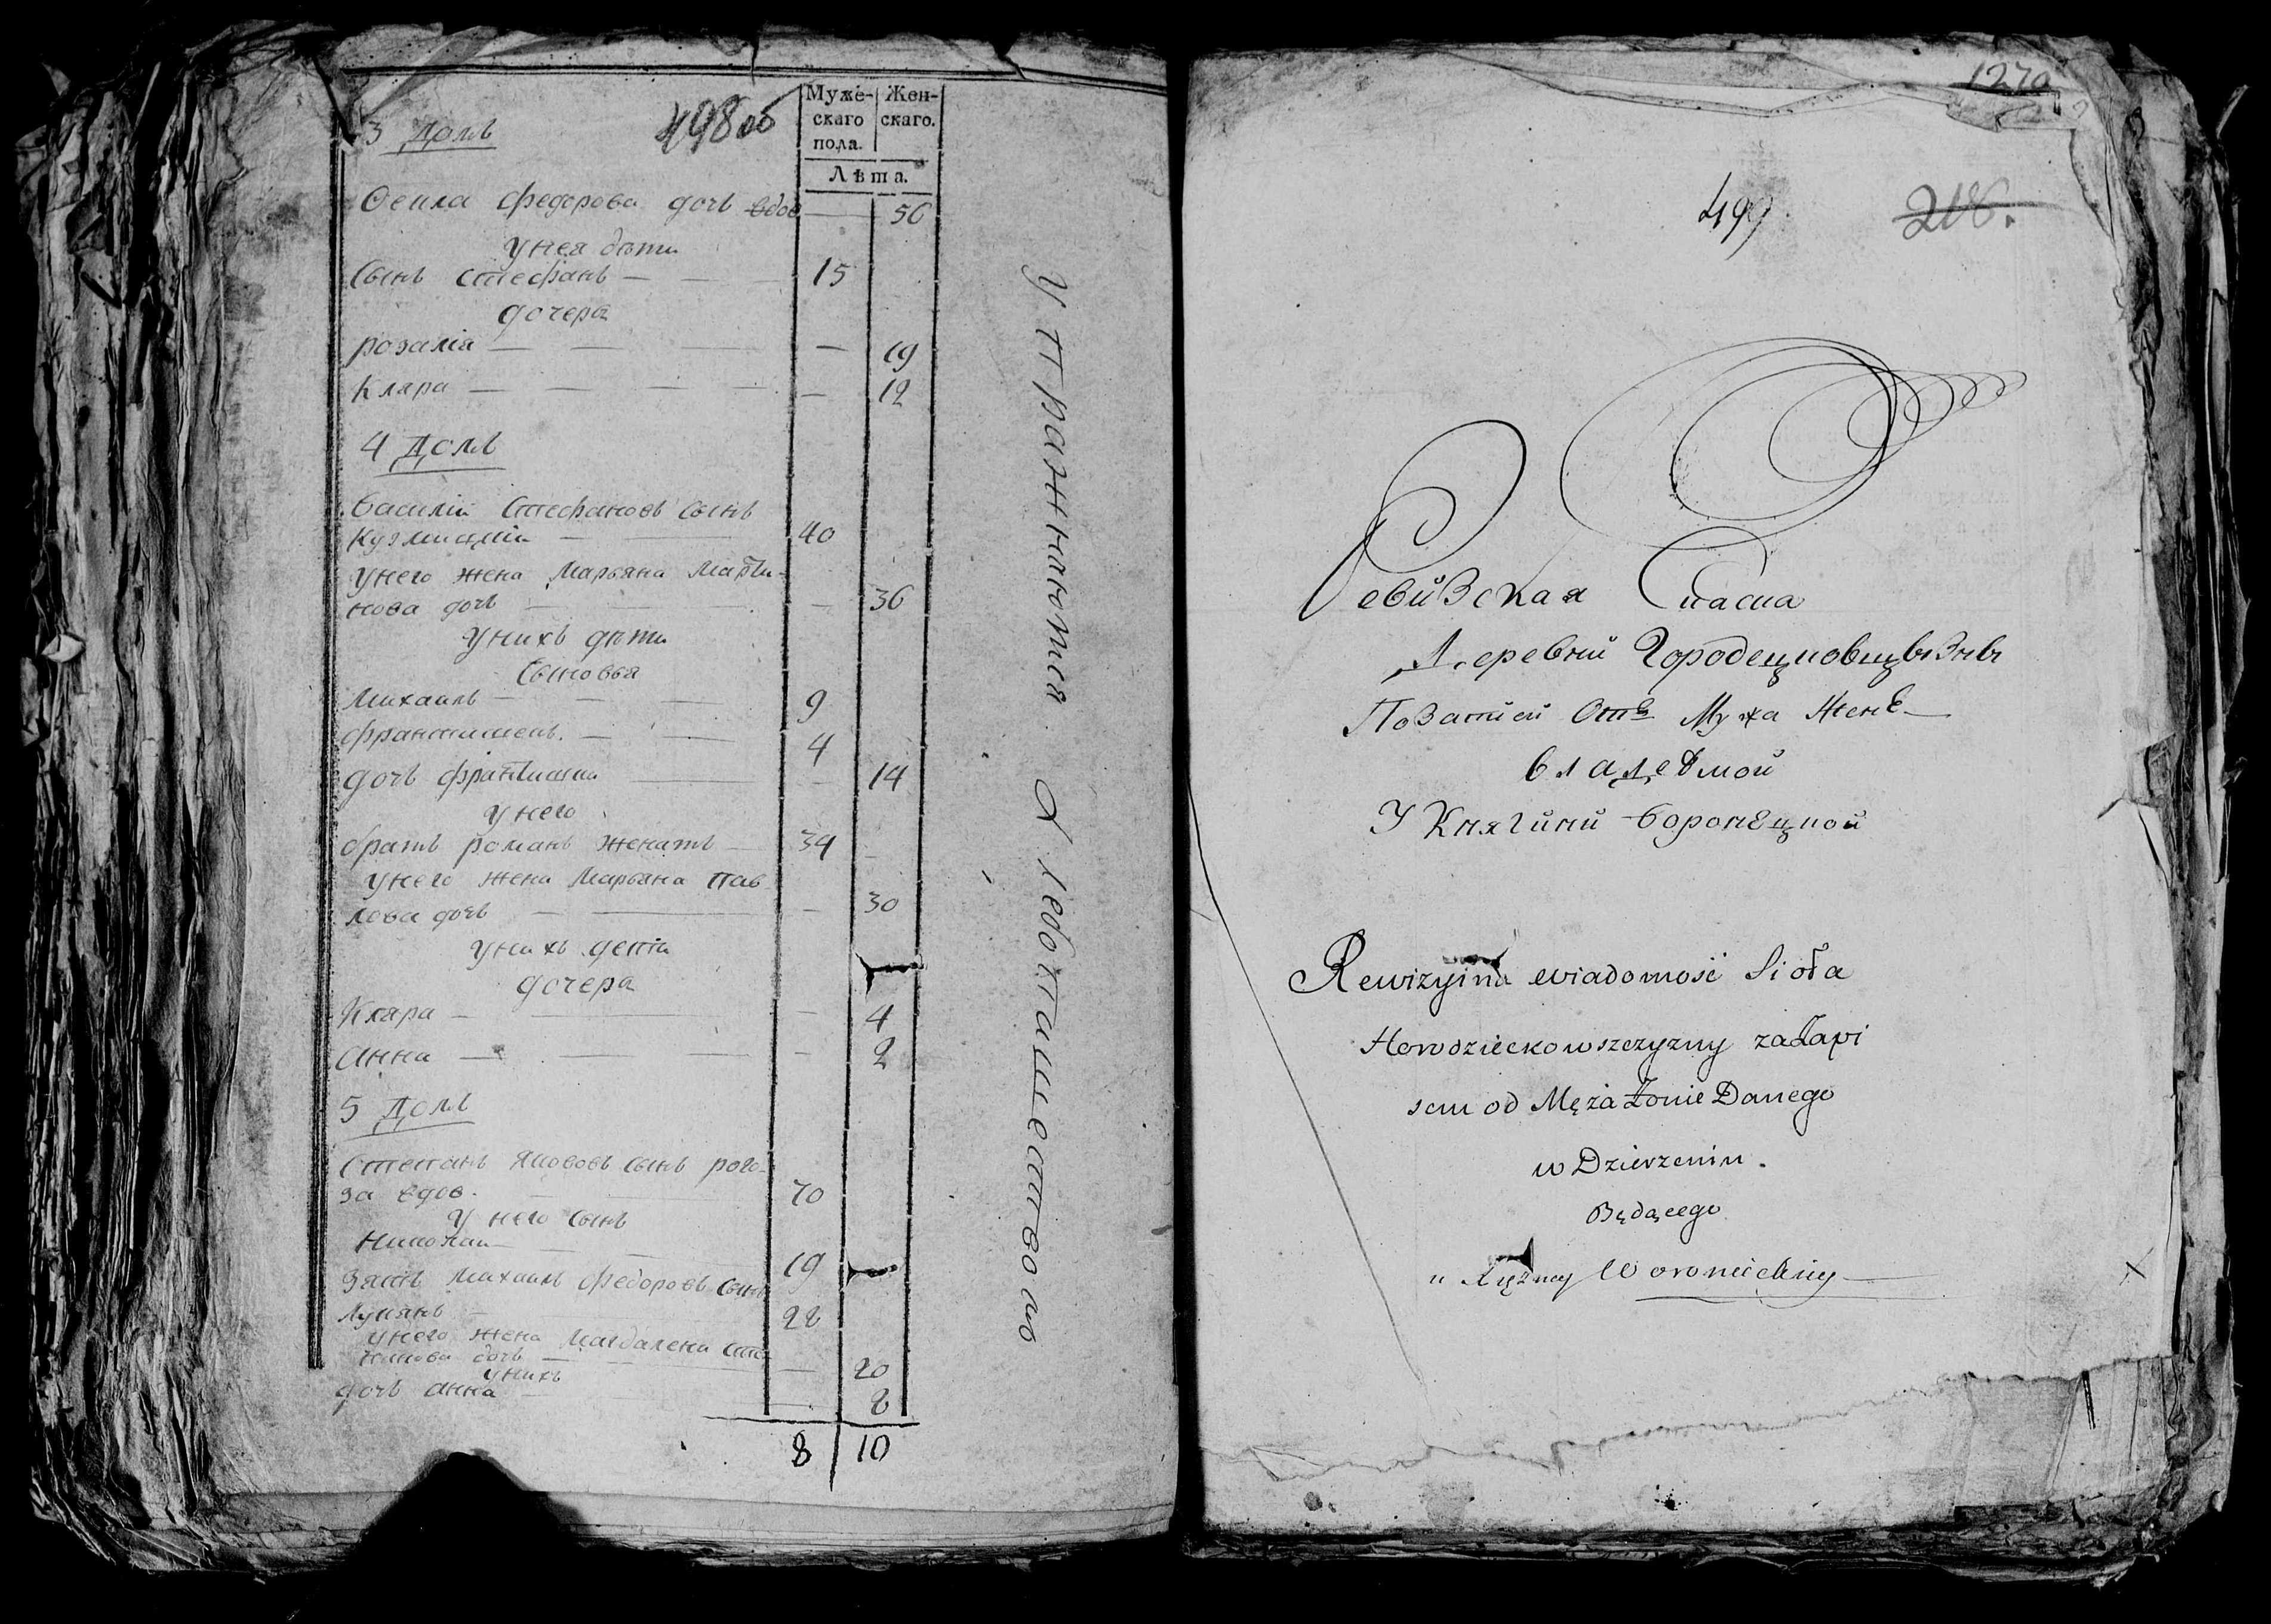 498об
Муже- Жен-
скаго скаго.
пола.
Лѣта.
3 Домъ
федорова дочь вдов — 56
У нея дѣти
Сынъ Стефанъ — — 15
дочера
розалія — — — — 19
Клара — — — — — 12
4 Домъ
Василій Стефановъ Сынъ
— 40
Унего жена Марьяна Марти-
нова дочь — — 36
Унихъ дѣти
Сыновья
Михаилъ — — — 9
францишекъ. — — 4
дочь францишка — — 14
Унего
братъ романъ женатъ — 34 —
Унего жена Марьяна Пав
лова дочь — — — 30
Унихъ дети
дочера
Клара — — — 4
Анна — — — 2
5 Домъ
Степанъ Яковъ Сынъ рого-
за вдов. — 70
У него Сынъ
Николай — — — 19
Зять Михаилъ Федоровъ Сынъ
Лукянъ — 22
Унего жена Магдалена Сте
дочь — — — 20
Унихъ
дочь Анна — — 2
8 10
Упражняются Хлебопашествомъ
1270
499
218.
Ревизская Сказка
Деревни Городецковщызнъ
Отъ Мужа Жене —
владемой
У Княгини Воронецкой
Rewizyina wiadomość Sioła
Horodzieckowszczyzny zadapi
sem od Męża Żonie Danego
w Dzierzeniu.
Będącego
u Xiężney Woronieckiey —